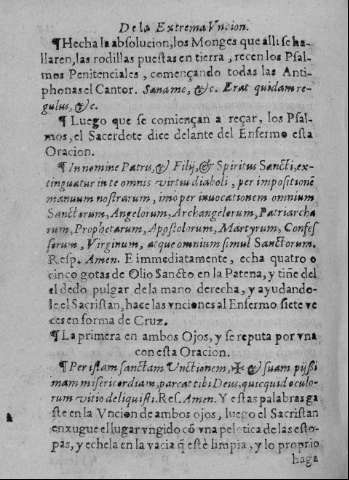 De la Extrema Vncion.
¶Hecha la absolucion, los Monges que alli se ha-
llaren, las rodillas puestas en tierra, recen los Psal-
mos Penitenciales, començando todas las Anti-
phonas el Cantor. Saname, &c. Erat quidam re-
gulus, &c.
¶Luego que se comiençan a reçar, los Psal-
mos, el Sacerdote dice delante del Enfermo esta
Oracion.
¶In nomine Patris, & Filij, & Spiritus Sancti, ex-
tinguatur in te omnis virtus diaboli, per impositionē
manuum nostrarum, imo per inuocationem omnium
Sanctorum, Angelorum, Archangelorum, Patriarcha
rum, Prophetarum, Apostolorum, Martyrum, Confes
sorum, Virginum, atque omnium simul Sanctorum.
Resp. Amen. E immediatamente, echa quatro o
cinco gotas de Olio Sancto en la Patena, y tiñe del
el dedo pulgar de la mano derecha, y ayudando-
le el Sacristan, hace las vnciones al Enfermo siete ve
ces en forma de Cruz.
¶La primera en ambos Ojos, y se reputa por vna
con esta Oracion.
¶Per istam sanctam Vnctionem, ✠ & suam pijssi
mam misericordiam, parcat tibi Deus, quicquid oculo-
rum vitio deliquisti. Res. Amen. Y estas palabras ga
ste en la Vncion de ambos ojos, luego el Sacristan
enxugue el lugar vngido cō vna pelotica de las esto-
pas, y echela en la vacia q̄ esté limpia, y lo proprio
haga